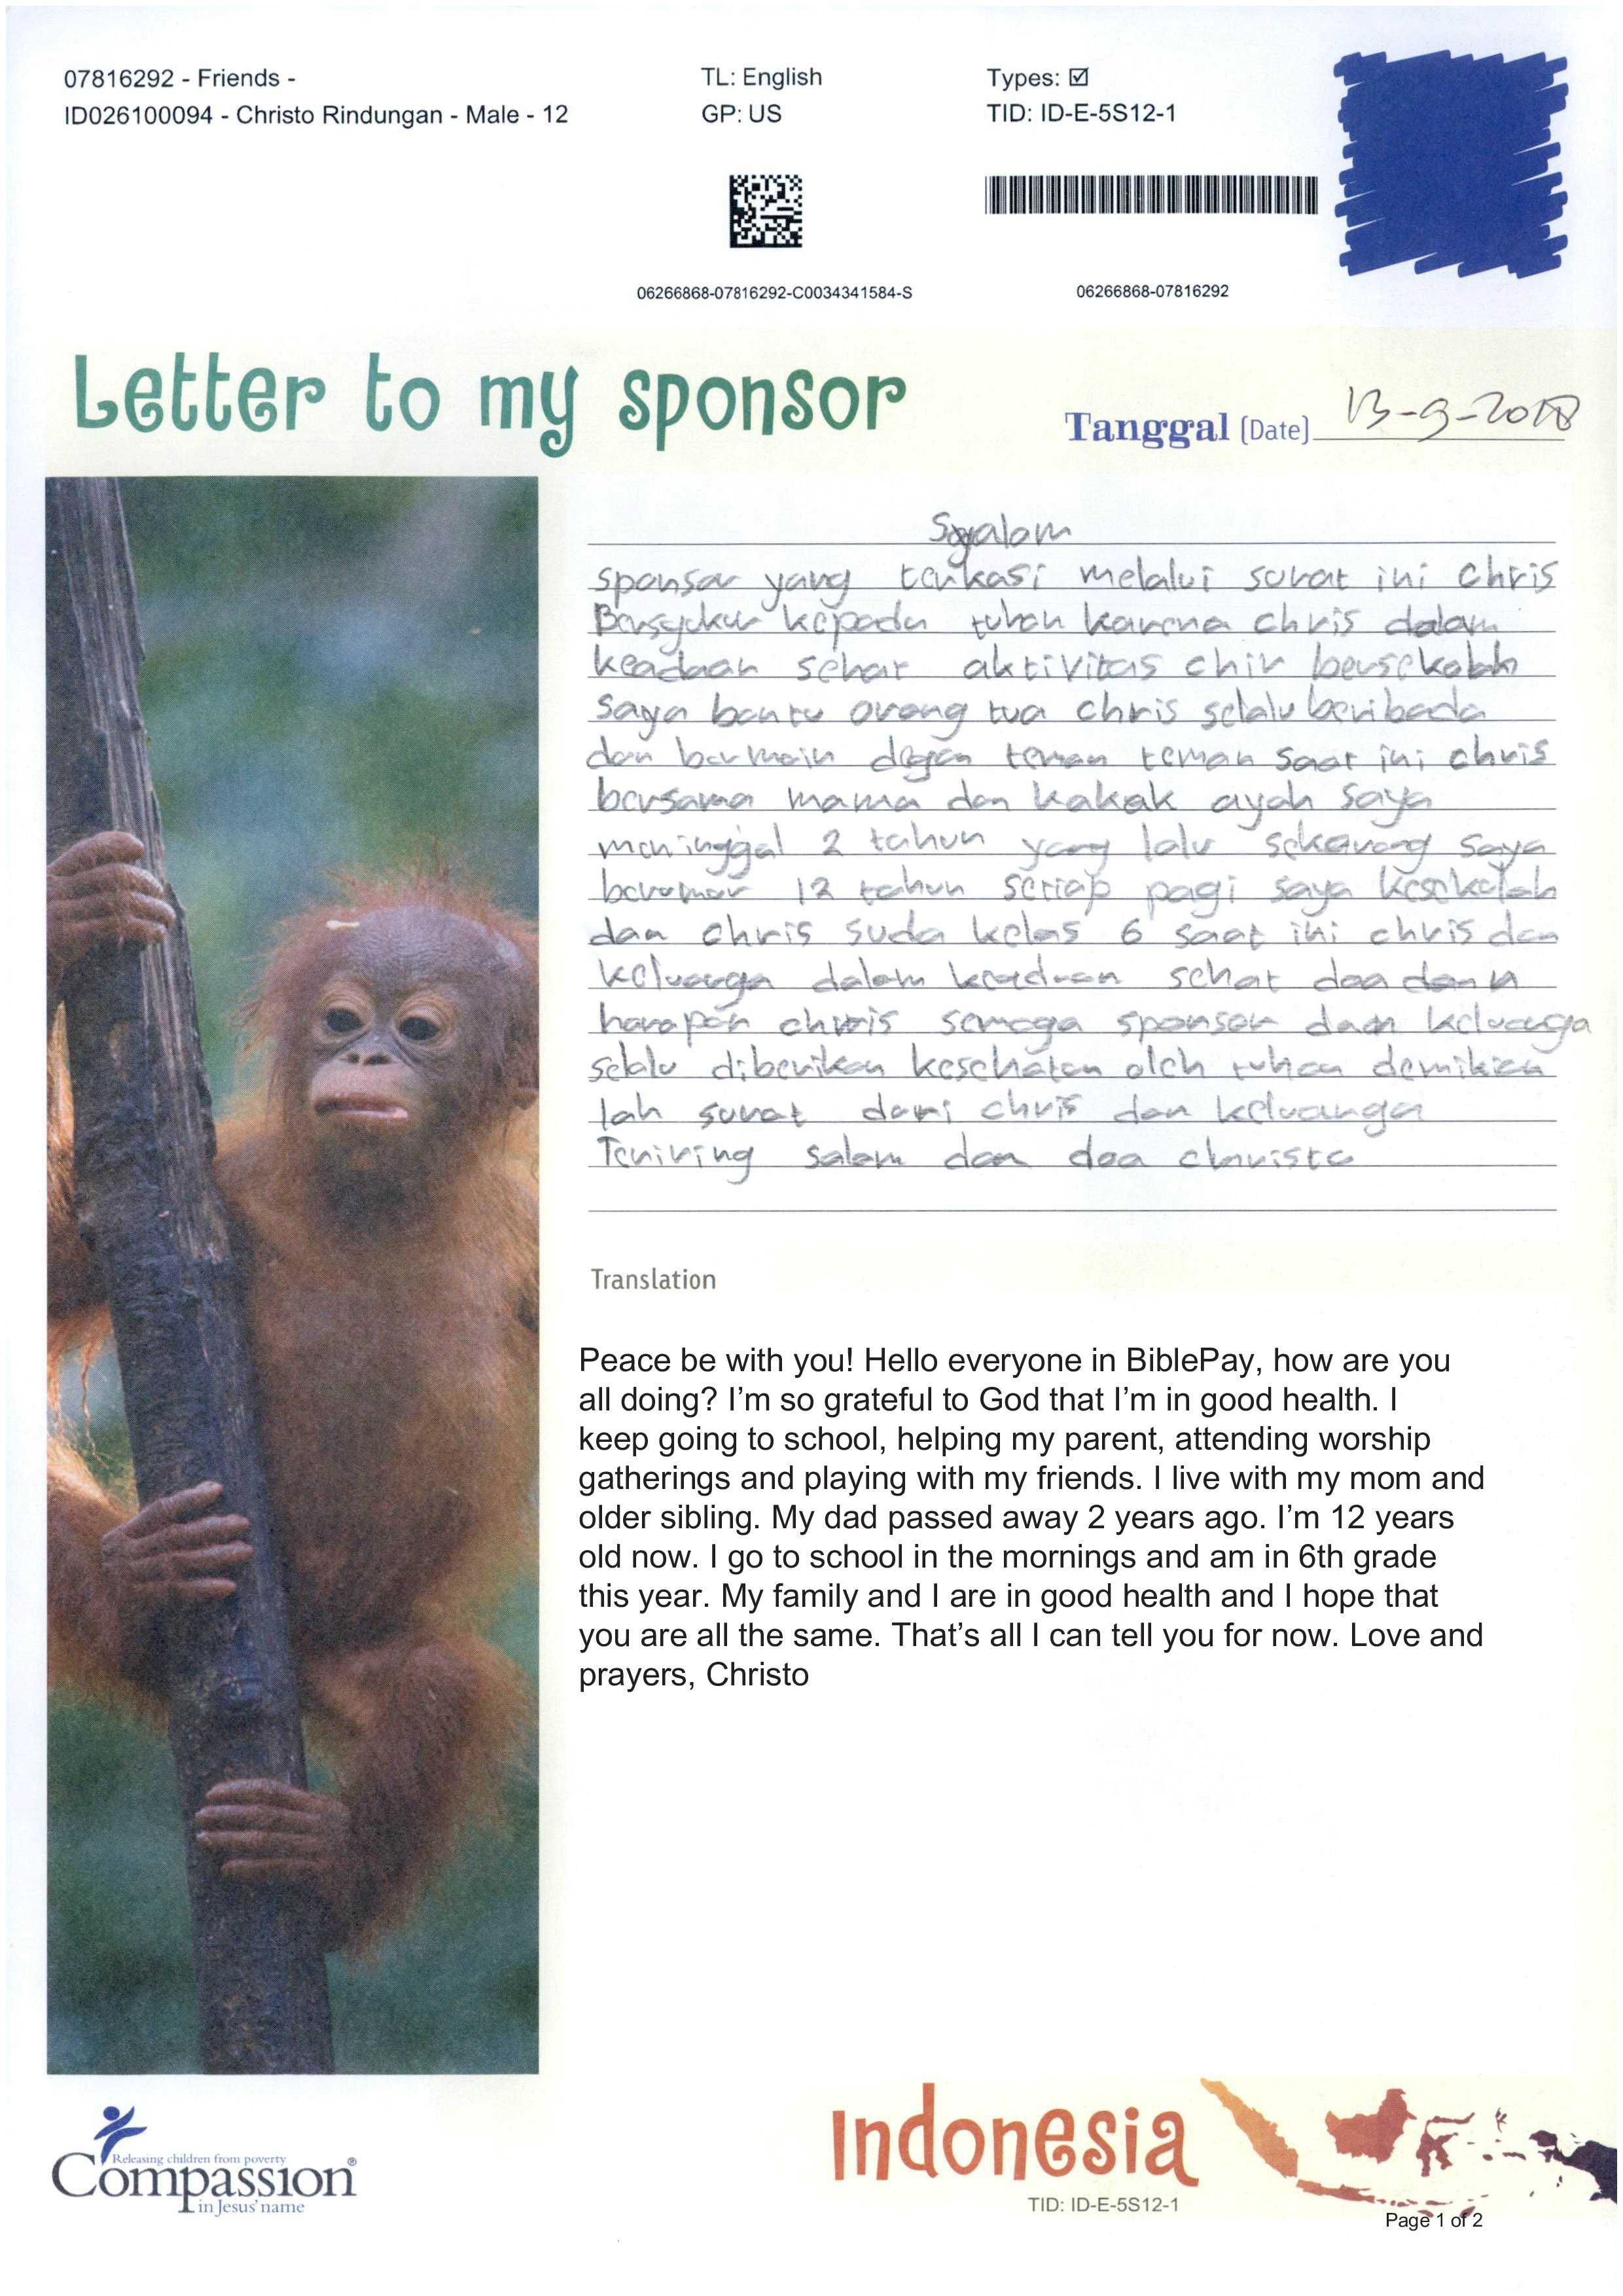 07816292 - Friends -
ID026100094 - Christo Rindungan - Male - 12
TL: English
GP: US
Types: ☑
TID: ID-E-5S12-1
06266868-07816292-C0034341584-S
06266868-07816292
Letter to my sponsor
Tanggal (Date) 13-9-2018
Syalom
sponsor yang terkasi melalui surat ini Chris
Bersyukur kepada tuhan karena chris dalam
keadaan sehat aktivitas chir bersekolah
saya bantu orang tua chris selalu beribada
dan bermain degan teman teman saat ini chris
bersama mama dan kakak ayah saya
meninggal 2 tahun yang lalu sekarang saya
berumur 12 tahun setiap pagi saya kesekolah
dan chris suda kelas 6 saat ini chris dan
keluarga dalam keadaan sehat doa dan
harapan chris semoga sponsor dan keluarga
selalu diberikan kesehatan oleh tuhan demikian
lah surat dari chris dan keluarga
Teriring salam dan doa christo
Translation
Peace be with you! Hello everyone in BiblePay, how are you
all doing? I’m so grateful to God that I’m in good health. I
keep going to school, helping my parent, attending worship
gatherings and playing with my friends. I live with my mom and
older sibling. My dad passed away 2 years ago. I’m 12 years
old now. I go to school in the mornings and am in 6th grade
this year. My family and I are in good health and I hope that
you are all the same. That’s all I can tell you for now. Love and
prayers, Christo
Releasing children from poverty
Compassion®
in Jesus’ name
Indonesia
TID: ID-E-5S12-1
Page 1 of 2